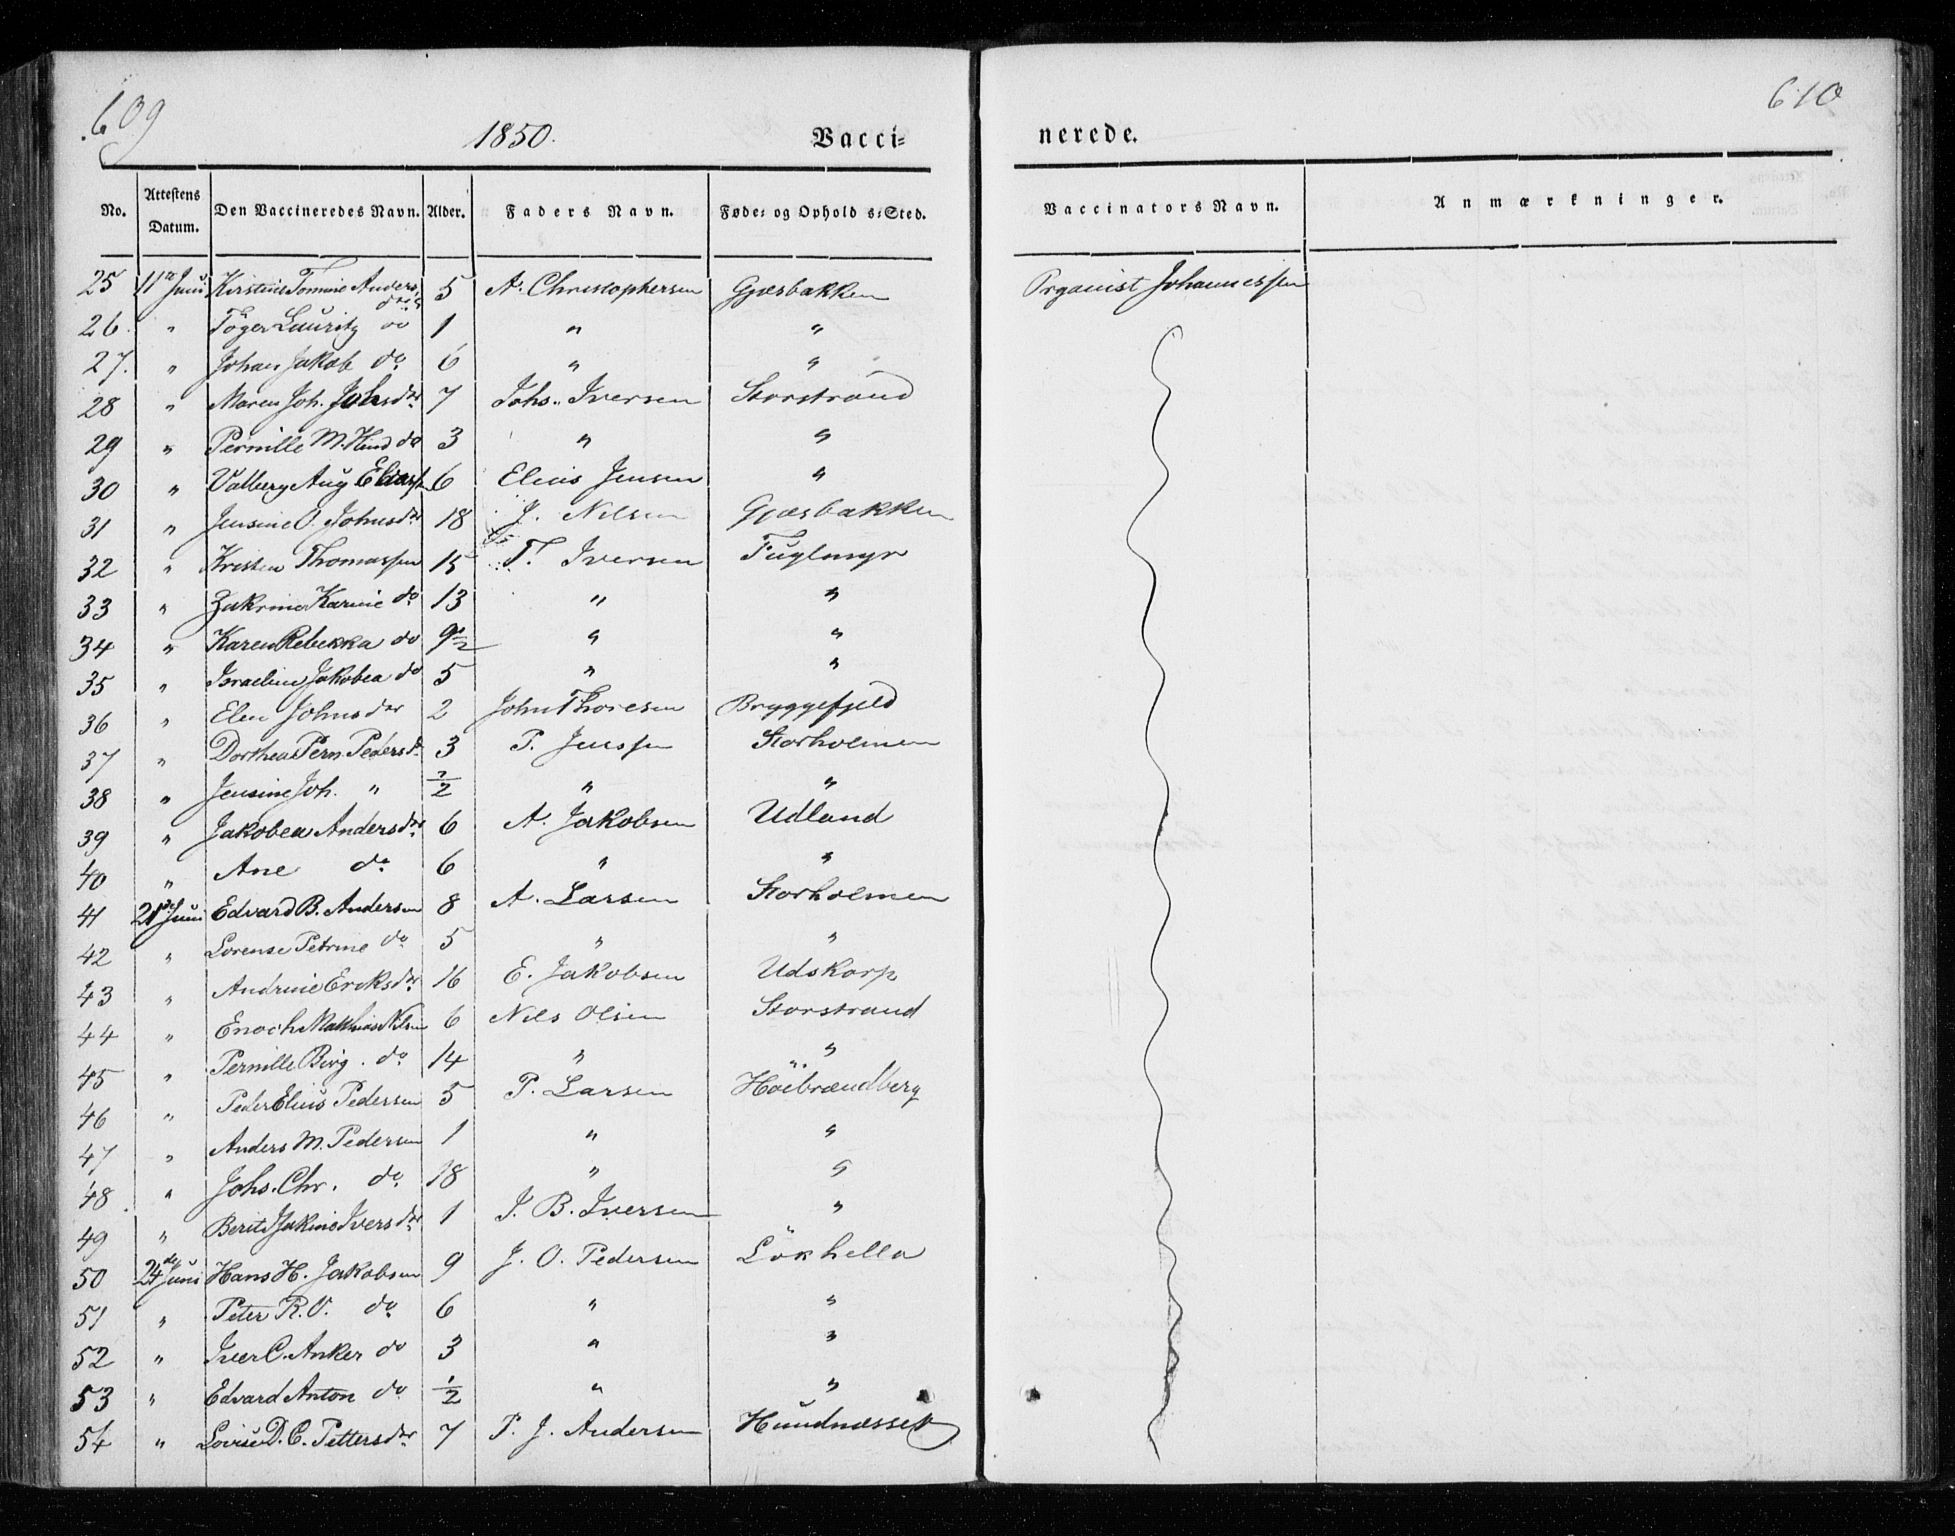 609
1850.
Vacci=
No. Attestens Datum. Den Vaccineredes Navn. Alder. Faders Navn. Føde- og Opholds-Sted.
25 11te Juni Kirstine Tomine Andersdtr 5 A. Christophersen Gjæsbakken
26. " Töger Lauritz do 1 " "
27. " Johan Jakob do 6 " "
28 " Maren Joh. Johsdtr 7 Johs. Iversen Storstrand
29 " Pernille M. Hind do 3 " "
30 " Valberg Aug Eliasen 6 Elias Jensen "
31 " Jensine O. Johnsdtr 18 J. Nilsen Gjæsbakken
32 " Kristen Thomassen 15 T. Iversen Fuglmyr
33 " Zakrine Karine do 13 " "
34 " Karen Rebekka do 9½ " "
35 " Israeline Jakobea do 5 " "
36 " Elen Johnsdtr 2 John Thoresen Bryggefjeld
37 " Dorthea Pern. Pedersd. 3 P. Jenssen Storholmen
38 " Jensine Joh. " ½ " "
39 " Jakobea Andersdtr 6 A. Jakobsen Udland
40 " Ane do 6 " "
41 21de Juni Edvard B. Andersen 8 A. Larsen Storholmen
42 " Lorense Petrine do 5 " "
43 " Andrine Eriksdtr 16 E. Jakobsen Udskarp
44 " Enoch Mathias Nilsen 6 Nils Olsen Storstrand
45 " Pernille Birg. do 14 " "
46 " Peder Elius Pedersen 5 P. Larsen Höibrændberg
47 " Anders M. Pedersen 1 " "
48 " Johs. Chr. do 18 " "
49 " Berit Jakine Iversdtr 1 I. B. Iversen "
50 24de Juni Hans H. Jakobsen 9 J. O. Pedersen Lökhella
51 " Peter R. O. do 6 " "
52 " Iver C. Anker do 3 " "
53 " Edvard Anton do ½ " "
54 " Lovise D. C. Pettersdtr 7 P. J. Andersen Hundnæsset
610
nerede.
Vaccinators Navn. Anmærkninger.
Organist Johannessen